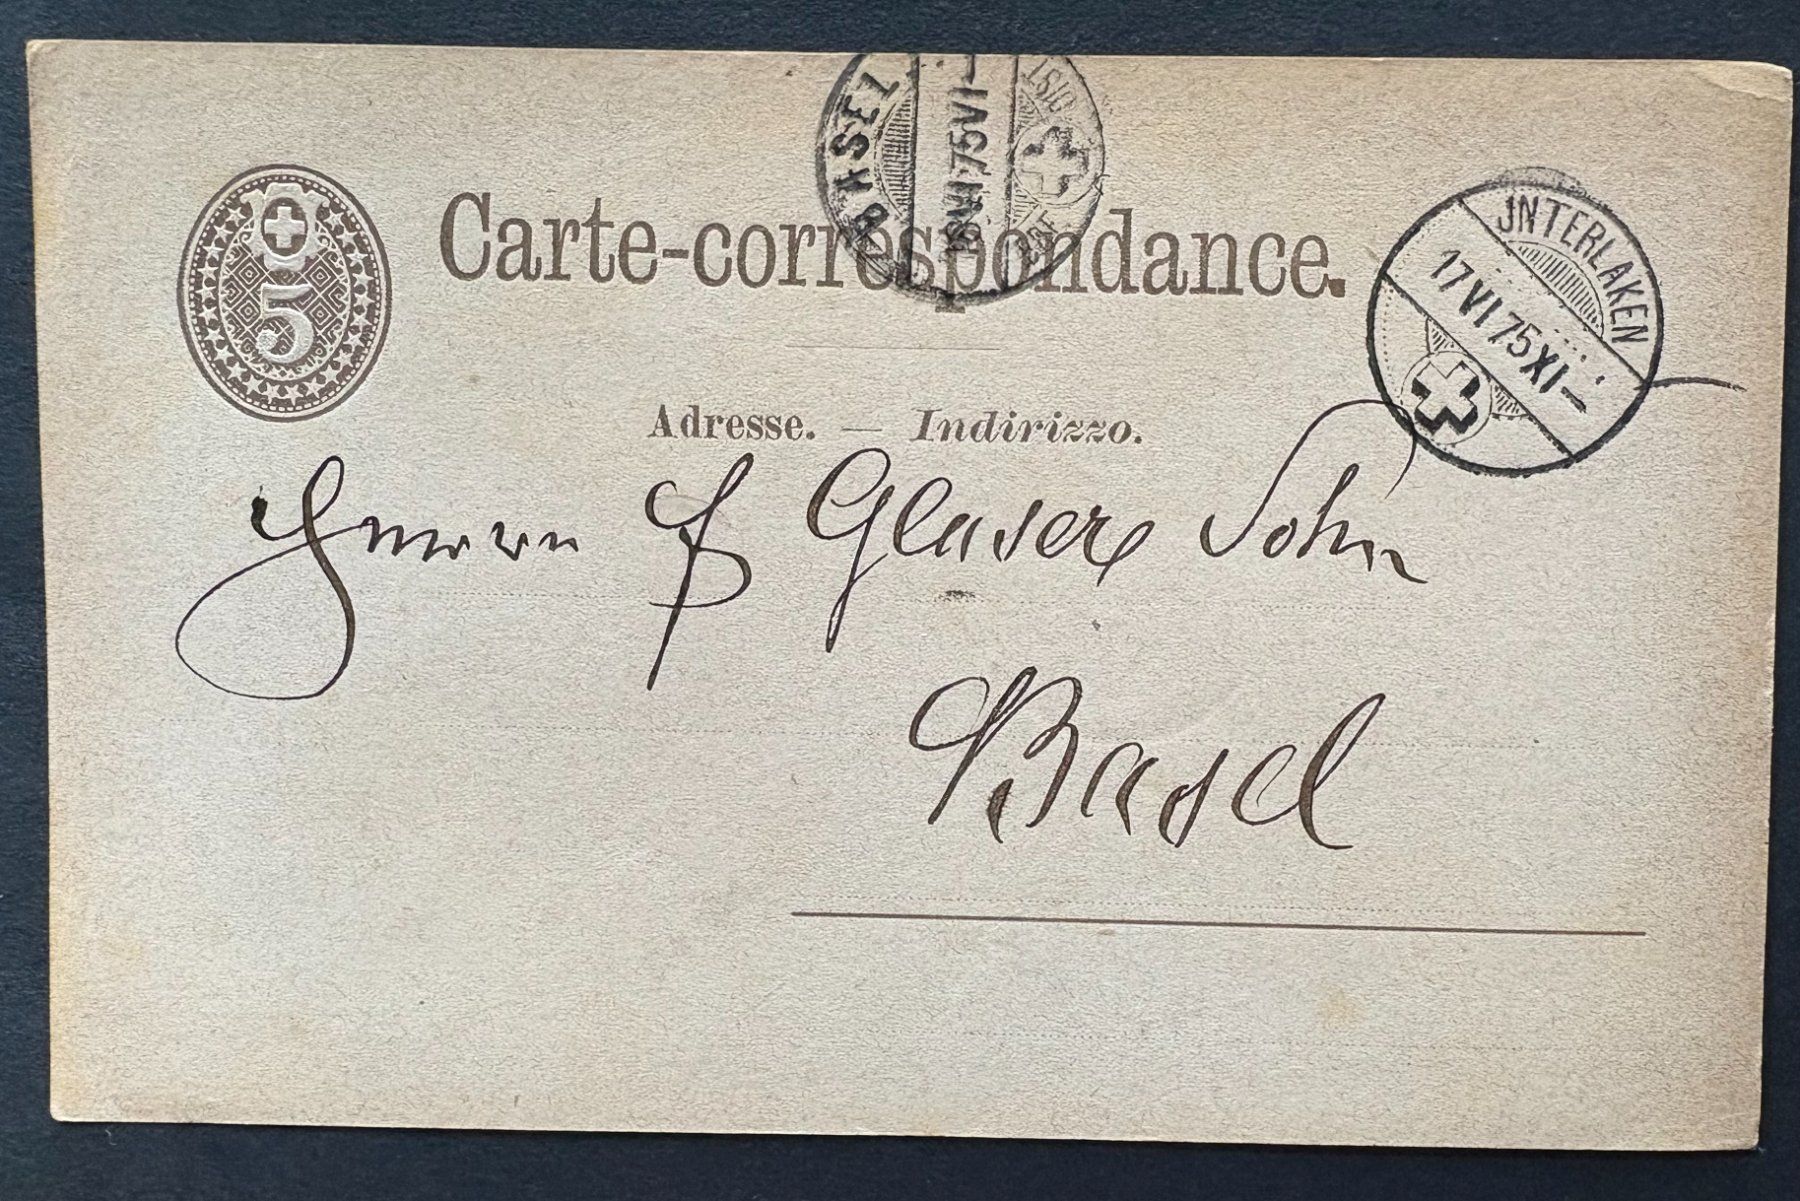 BASEL
18 VI 75 VI–
DIST
Carte-correspondance.
5
JNTERLAKEN
17 VI 75 XI–
Adresse. — Indirizzo.
Herrn Glaser Sohn
Basel